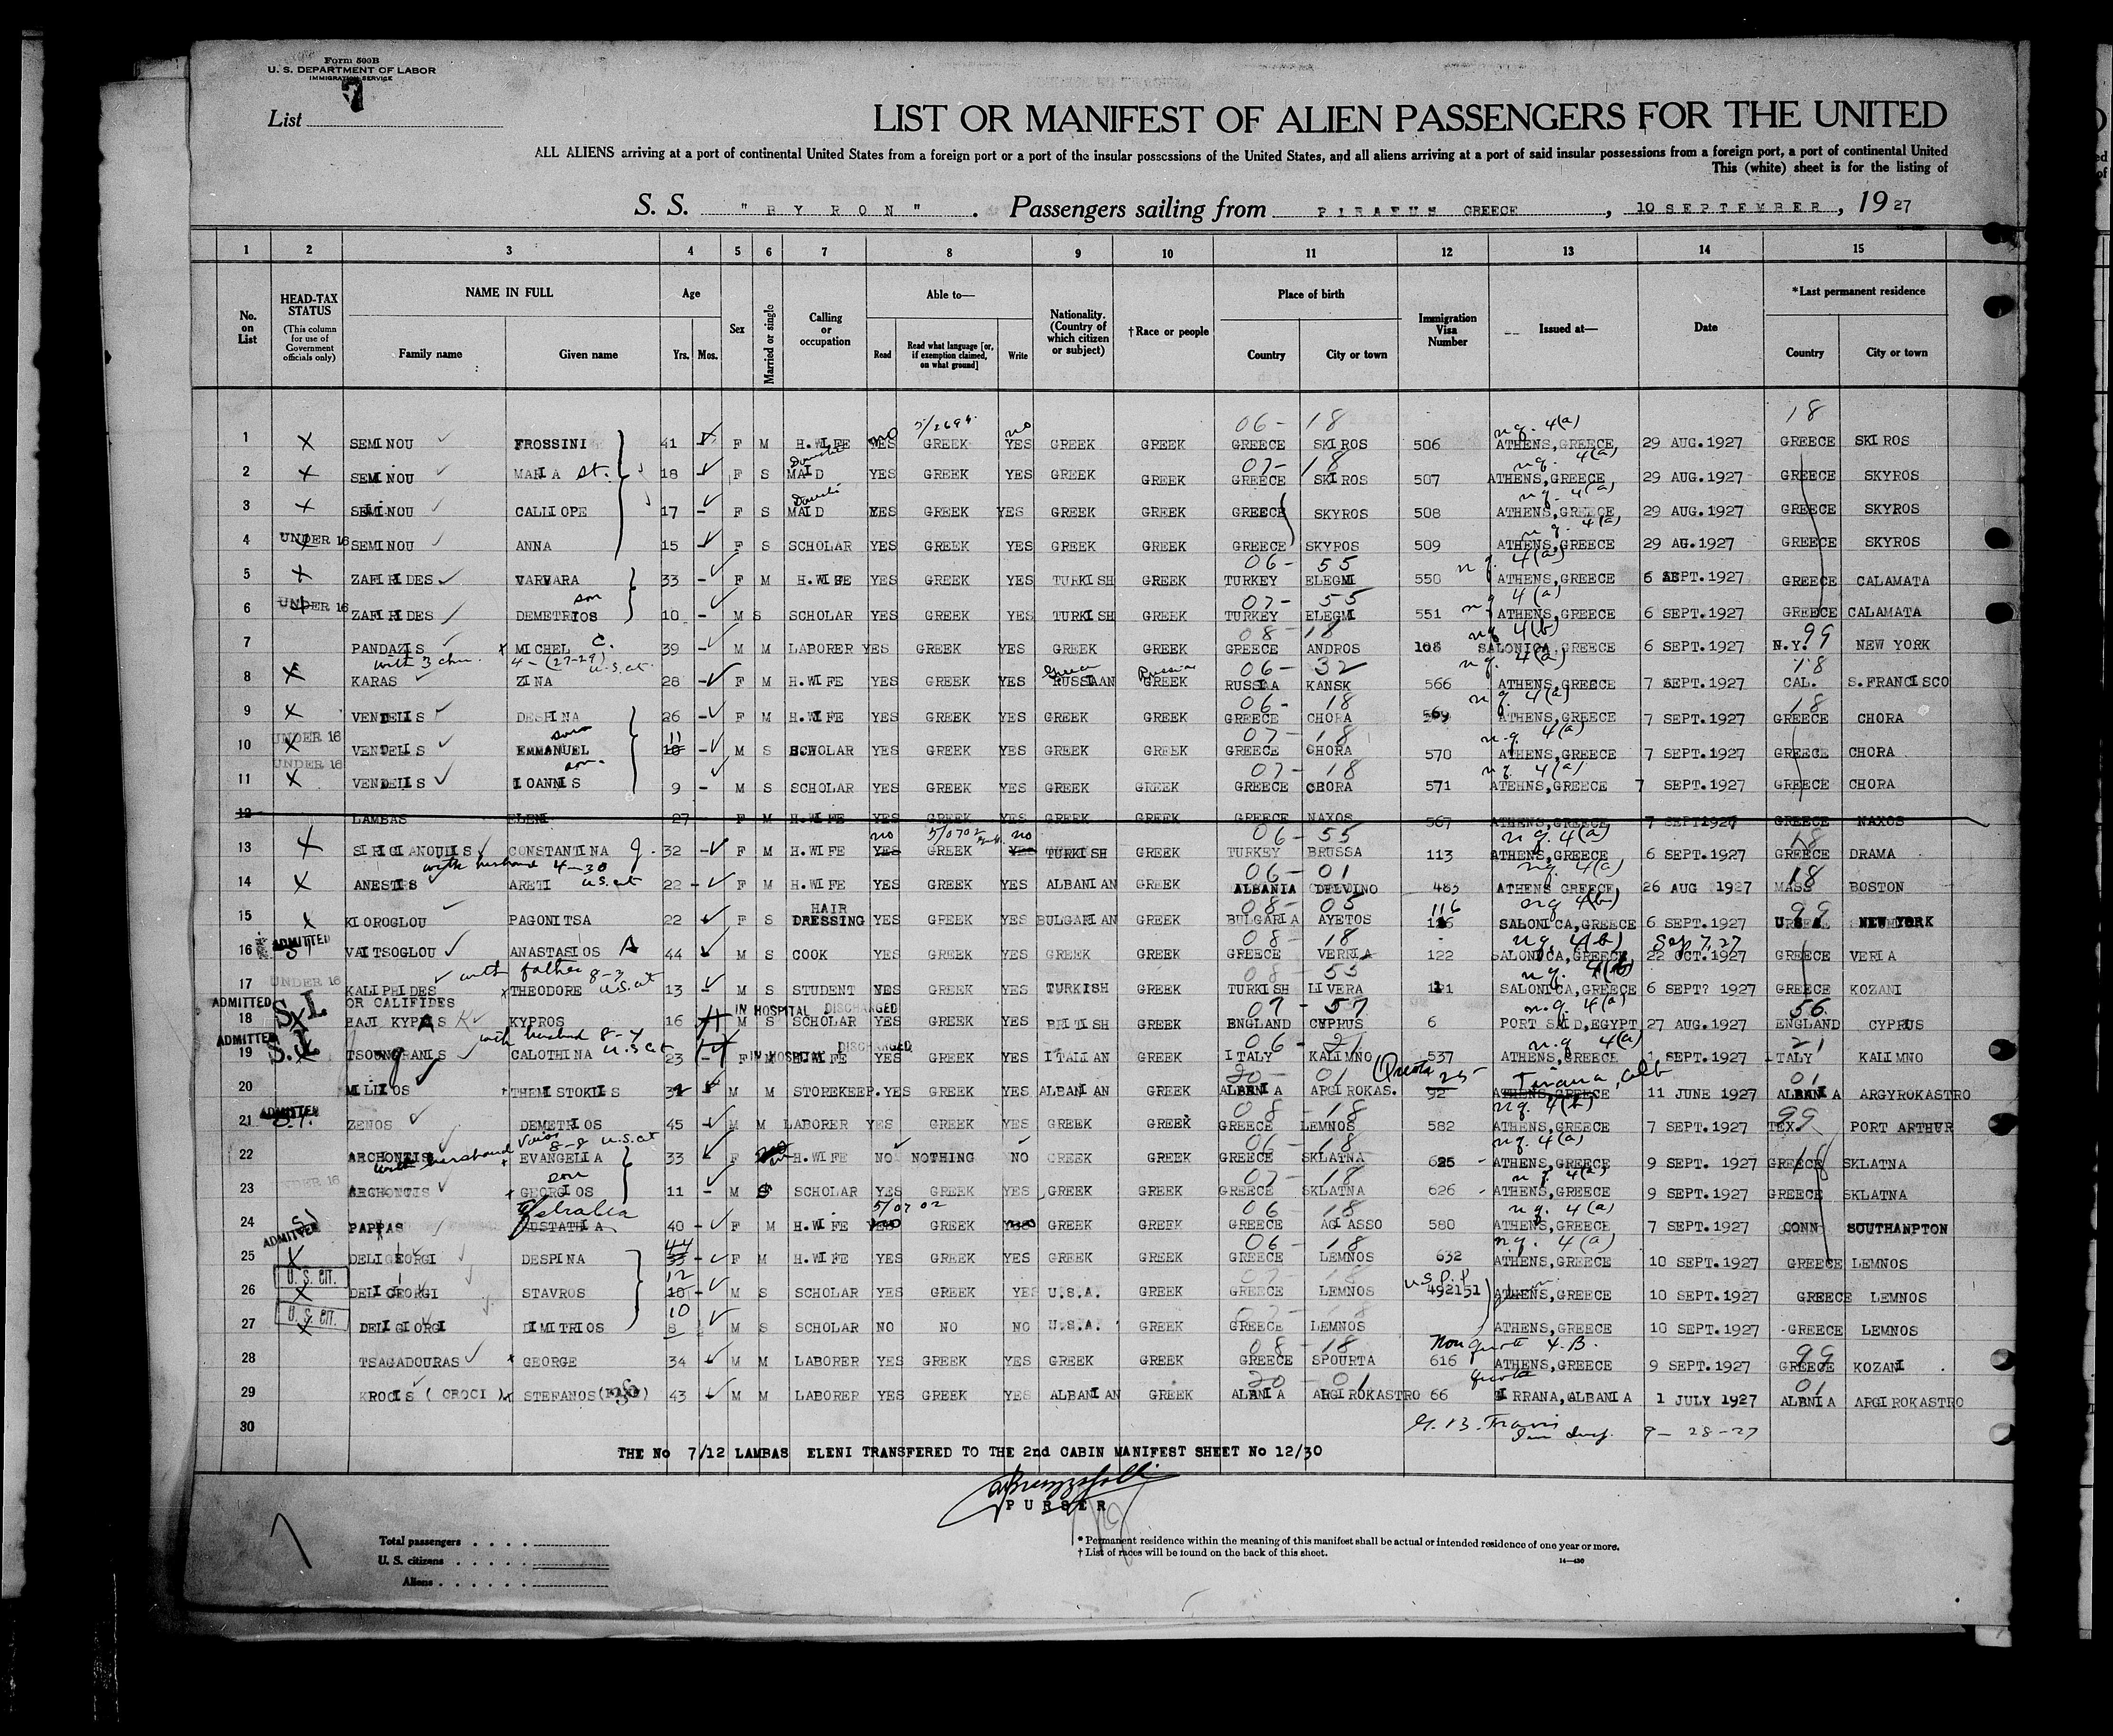 Form 500B
U. S. DEPARTMENT OF LABOR
IMMIGRATION SERVICE
List 7
LIST OR MANIFEST OF ALIEN PASSENGERS FOR THE UNITED
ALL ALIENS arriving at a port of continental United States from a foreign port or a port of the insular possessions of the United States, and all aliens arriving at a port of said insular possessions from a foreign port, a port of continental United
This (white) sheet is for the listing of
S. S. "BYRON". Passengers sailing from PIRAEUS GREECE, 10 SEPTEMBER, 1927
1 2 3 4 5 6 7 8 9 10 11 12 13 14 15
No. on List HEAD-TAX STATUS (This column for use of Government officials only) NAME IN FULL Family name Given name Age Yrs. Mos. Sex Married or single Calling or occupation Able to— Read Read what language [or, if exemption claimed, on what ground] Write Nationality. (Country of which citizen or subject) †Race or people Place of birth Country City or town Immigration Visa Number Issued at— Date *Last permanent residence Country City or town
5/2694 06 - 18 nq. 4(a) 18
1 X SEMINOU FROSSINI 41 F M H.WIFE YES no GREEK YES no GREEK GREEK GREECE SKIROS 506 ATHENS,GREECE 29 AUG.1927 GREECE SKIROS
Domestic 07- 18 nq. 4(a)
2 X SEMINOU MARIA st. 18 F S MAID YES GREEK YES GREEK GREEK GREECE SKIROS 507 ATHENS,GREECE 29 AUG.1927 GREECE SKYROS
nq. 4(a)
3 X SEMINOU CALLIOPE 17 - F S MAID YES GREEK YES GREEK GREEK GREECE SKYROS 508 ATHENS,GREECE 29 AUG.1927 GREECE SKYROS
nq. 4(a)
4 UNDER 16 SEMINOU ANNA 15 - F S SCHOLAR YES GREEK YES GREEK GREEK GREECE SKYROS 509 ATHENS,GREECE 29 AUG.1927 GREECE SKYROS
06 - 55 nq. 4(a)
5 X ZAFIRIDES VARVARA 33 - F M H.WIFE YES GREEK YES TURKISH GREEK TURKEY ELEGMI 550 ATHENS,GREECE 6 SEPT.1927 GREECE CALAMATA
son 07- 55 nq 4(a)
6 UNDER 16 ZAFIRIDES DEMETRIOS 10 - M S SCHOLAR YES GREEK YES TURKISH GREEK TURKEY ELEGMI 551 ATHENS,GREECE 6 SEPT.1927 GREECE CALAMATA
08 - 18 nq 4(b) 99
7 PANDAZIS x MICHEL C. 39 - M M LABORER YES GREEK YES GREEK GREEK GREECE ANDROS 108 SALONICA,GREECE 6 SEPT.1927 N.Y. NEW YORK
4-(27-29) U.S.at. Greece Russian 06- 32 nq. 4(a) 18
8 X KARAS ZINA 28 - F M H.WIFE YES GREEK YES RUSSIAAN GREEK RUSSIA KANSK 566 ATHENS,GREECE 7 SEPT.1927 CAL. S.FRANCISCO
06- 18 nq. 4(a) 18
9 X VENDELIS DESPINA 26 - F M H.WIFE YES GREEK YES GREEK GREEK GREECE CHORA 569 ATHENS,GREECE 7 SEPT.1927 GREECE CHORA
son 11 07- 18 n.q 4(a)
10 UNDER 16 X VENDELIS EMMANUEL 10 - M S SCHOLAR YES GREEK YES GREEK GREEK GREECE CHORA 570 ATHENS,GREECE 7 SEPT.1927 GREECE CHORA
son. 07- 18 nq. 4(a)
11 UNDER 16 X VENDELIS IOANNIS 9 - M S SCHOLAR YES GREEK YES GREEK GREEK GREECE CHORA 571 ATEHNS,GREECE 7 SEPT.1927 GREECE CHORA
12 LAMBAS ELENI 27 F M H.WIFE YES GREEK YES GREEK GREEK GREECE NAXOS 567 ATHENS,GREECE 7 SEPT1927 GREECE NAXOS
no 5/0702 no 06- 55 nq. 4(a) 18
13 X SIRIGIANOUDIS CONSTANTINA 32 - F M H.WIFE YES GREEK YES TURKISH GREEK TURKEY BRUSSA 113 ATHENS,GREECE 6 SEPT.1927 GREECE DRAMA
with husband 4-30 U.S.at 06- 01 nq. 4(a) 18
14 X ANESTIS ARETI 22 - F M H.WIFE YES GREEK YES ALBANIAN GREEK ALBANIA DELVINO 483 ATHENS GREECE, 26 AUG 1927 MASS BOSTON
08- 05 116 nq 4(b) 99
15 X KIOROGLOU PAGONITSA 22 F S HAIR DRESSING YES GREEK YES BULGARIAN GREEK BULGARIA AYETOS 126 SALONICA,GREECE 6 SEPT.1927 U.S.A NEW YORK
08- 18 nq. 4(b) Sep 7, 27
16 ADMITTED VAITSOGLOU ANASTASIOS A 44 M S COOK YES GREEK YES GREEK GREEK GREECE VERRIA 122 SALONICA,GREECE 22 OCT.1927 GREECE VERIA
with father 8-3 U.S.at 08- 55 nq. 4(b)
17 UNDER 16 KALIPHIDES x THEODORE 13 - M S STUDENT YES GREEK YES TURKISH GREEK TURKISH LIVERA 121 SALONICA,GREECE 6 SEPT? 1927 GREECE KOZANI
ADMITTED S.I. OR CALIFIDES IN HOSPITAL DISCHARGED 07- 57 n.q 4(a) 56
18 HAJI KYPAS KYPROS 16 M S SCHOLAR YES GREEK YES BRITISH GREEK ENGLAND CYPRUS 6 PORT SAID,EGYPT, 27 AUG.1927 ENGLAND CYPRUS
ADMITTED S.I. with husband 8-4 U.S.at IN HOSPITAL DISCHARGED 06- 21 n.q 4(a) 21
19 TSOUNGRANIS CALOTHINA 23 - F M H.WIFE YES GREEK YES ITALIAN GREEK ITALY KALIMNO 537 ATHENS,GREECE 1 SEPT.1927 ITALY KALIMNO
20- 01 Quota 25 Tirana, Alb 01
20 MILLIOS THEMISTOKLIS M M STOREKEEP. YES GREEK YES ALBANIAN GREEK ALBNIA ARGIROKAS. 92 ATHENS,GREECE 11 JUNE 1927 ALBNIA ARGYROKASTRO
ADMITTED S.I. 08- 18 nq. 4(b) 99
21 ZENOS DEMETRIOS 45 M M LABORER YES GREEK YES GREEK GREEK GREECE LEMNOS 582 ATHENS,GREECE 7 SEPT.1927 TEX. PORT ARTHUR
8-8 U.S.at 06- 18 nq. 4(a)
22 ARCHONTIS EVANGELIA 33 F H.WIFE NO NOTHING NO GREEK GREEK GREECE SKLATNA 625 - ATHENS,GREECE 9 SEPT. 1927 GREECE SKLATNA
with husband son 07- 18 nq. 4(a) 18
23 UNDER 16 ARCHONTIS GEORGIOS 11 - M S SCHOLAR YES GREEK YES GREEK GREEK GREECE SKLATNA 626 - ATHENS,GREECE 9 SEPT. 1927 GREECE SKLATNA
5/07 02 06- 18 nq. 4(a)
24 SI ADMITTED PAPPAS EUSTATHIA 40 - F M H.WIFE YES GREEK YES GREEK GREEK GREECE AGIASSO 580 ATHENS,GREECE 7 SEPT.1927 CONN SOUTHANPTON
44 06- 18 nq. 4(a)
25 X DELIGEORGI DESPINA 33 - F M H.WIFE YES GREEK YES GREEK GREEK GREECE LEMNOS 632 ATHENS,GREECE 10 SEPT.1927 GREECE LEMNOS
U. S. CIT. 12 07- 18 U.S.P.P
26 X DELIGEORGI STAVROS 10 - M S SCHOLAR YES GREEK YES U.S.A. GREEK GREECE LEMNOS 492151 ATHENS,GREECE 10 SEPT.1927 GREECE LEMNOS
U. S. CIT. 10 07- 18
27 X DELIGIORGI DIMITRIOS 8 M S SCHOLAR NO NO NO U.S.A. GREEK GREECE LEMNOS ATHENS,GREECE 10 SEPT.1927 GREECE LEMNOS
08- 18 Non quota 4.B. 99
28 TSAGADOURAS x GEORGE 34 M M LABORER YES GREEK YES GREEK GREEK GREECE SPOURTA 616 ATHENS,GREECE 9 SEPT.1927 GREECE KOZANI
20- 01 quota 01
29 KROCIS (CROCI) STEFANOS 43 M M LABORER YES GREEK YES ALBANIAN GREEK ALBNIA ARGIROKASTRO 66 TIRRANA,ALBANIA 1 JULY 1927 ALBNIA ARGIROKASTRO
30 G. B. Travis Imm Insp. 9-28-27
THE No 7/12 LAMBAS ELENI TRANSFERED TO THE 2nd CABIN MANIFEST SHEET No 12/30
PURSER
Total passengers
U. S. citizens
Aliens
* Permanent residence within the meaning of this manifest shall be actual or intended residence of one year or more.
† List of races will be found on the back of this sheet.
14—430